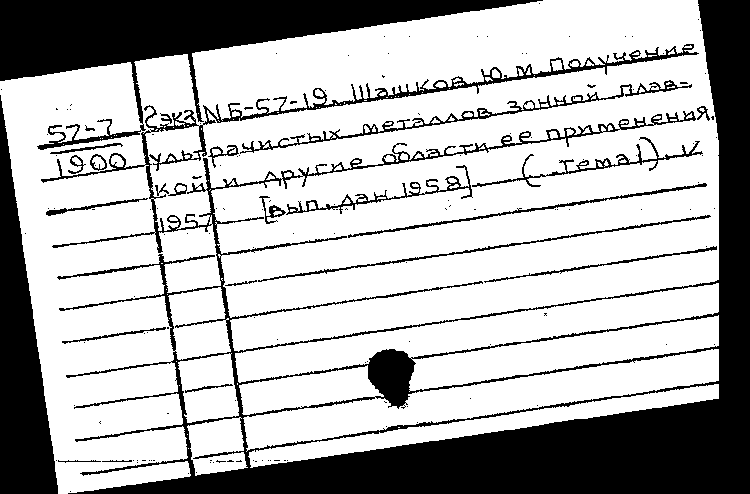 57-7 2экз N Б-57-19. Шашков, Ю. М. Получение
1900 ультрачистых металлов зонной плав-
кой и другие области ее применения.
1957 [вып. дан 1958]. (тема1). V